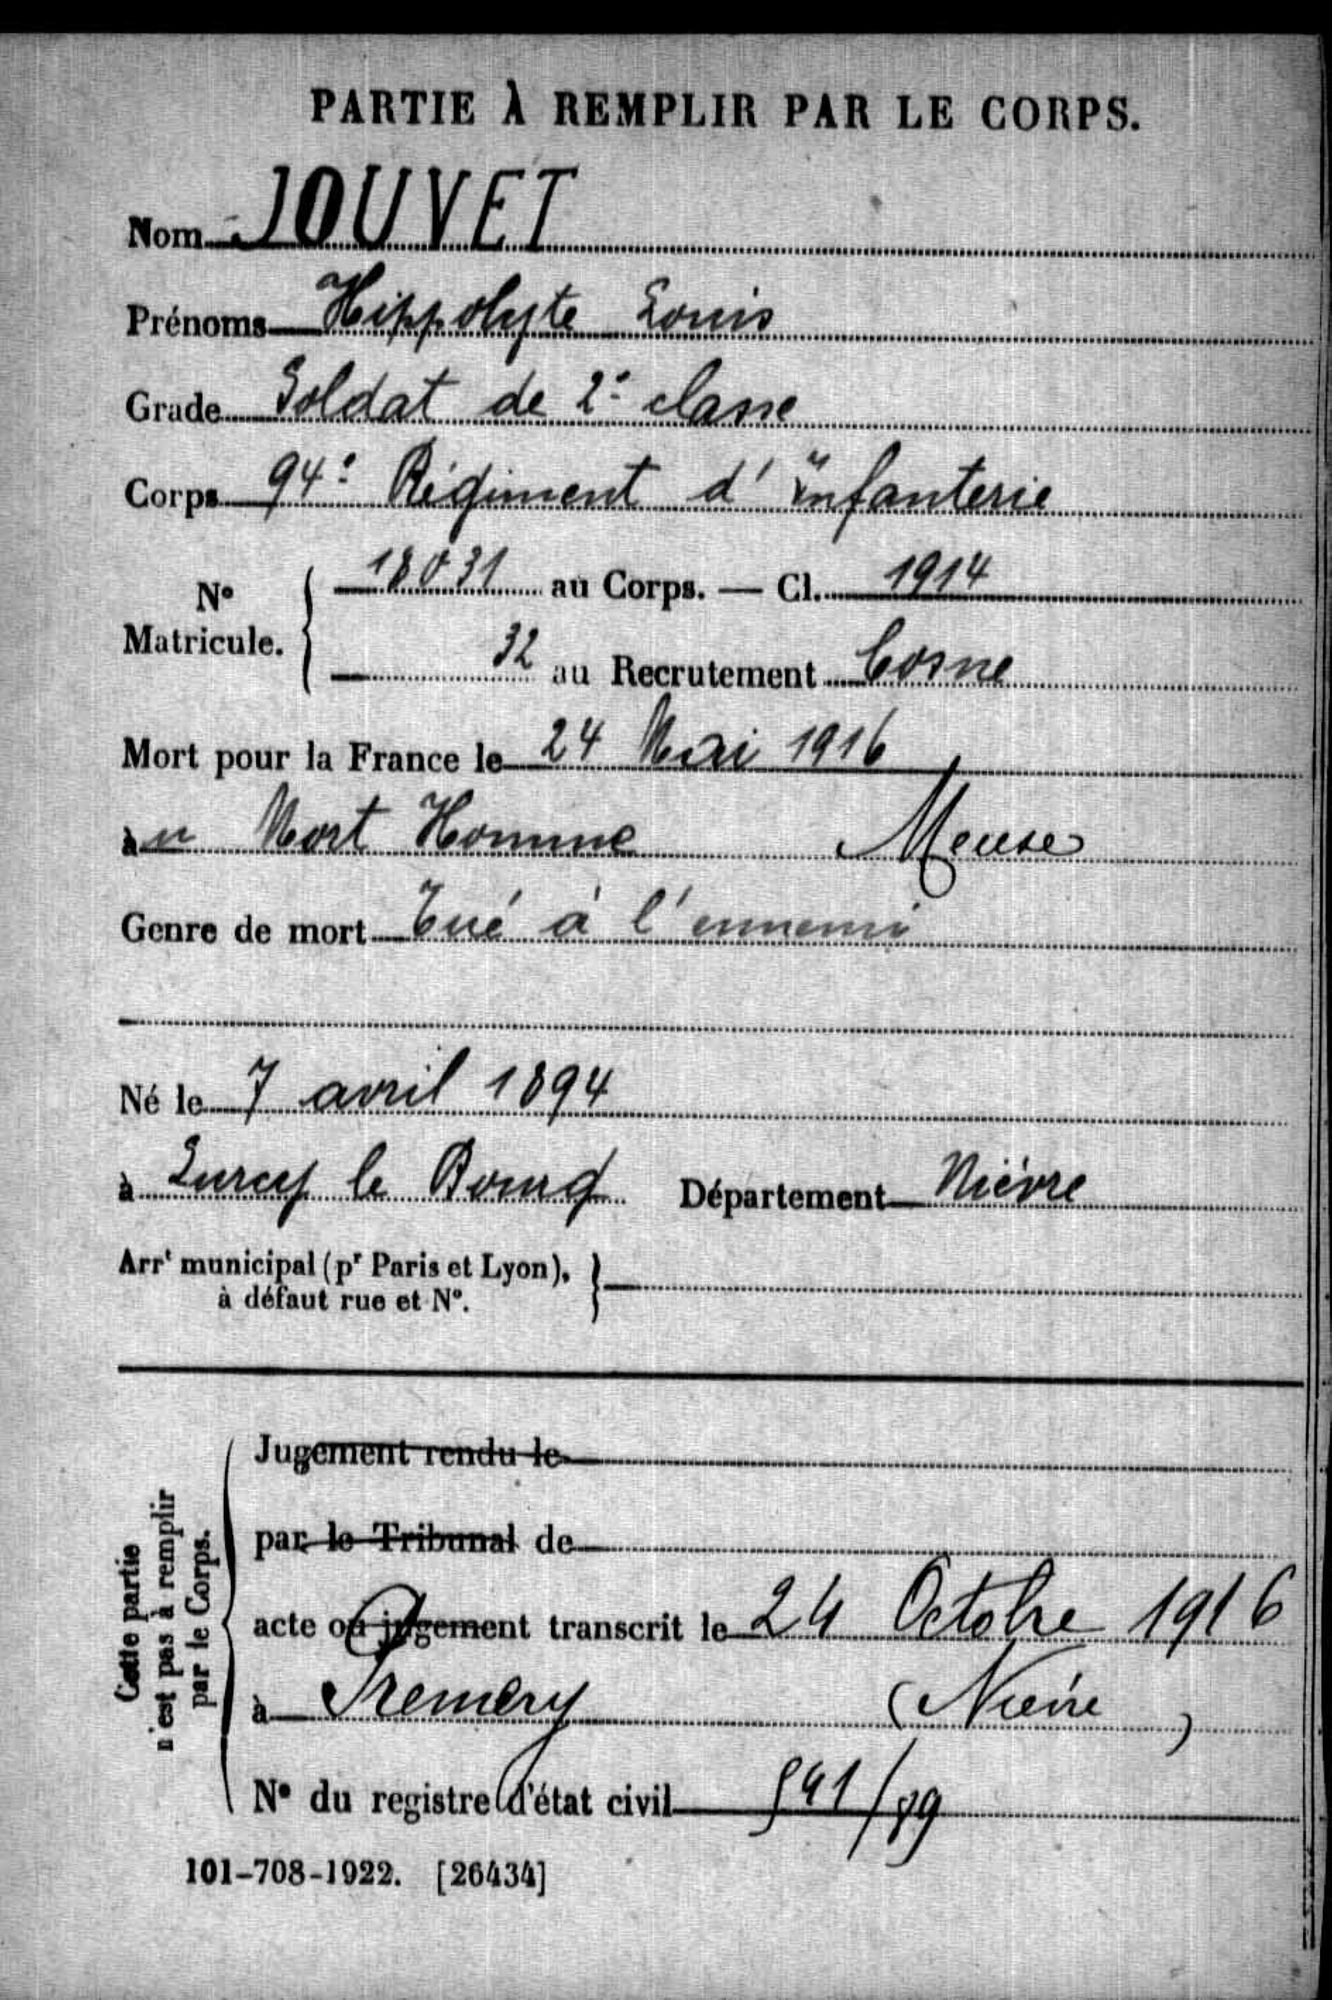 PARTIE À REMPLIR PAR LE CORPS.
Nom JOUVET
Prénoms Hippolyte Louis
Grade Soldat de 2e classe
Corps 94e Régiment d'Infanterie
No Matricule. { 18031 au Corps. — Cl. 1914
32 au Recrutement Cosne
Mort pour la France le 24 Mai 1916
au Mort Homme Meuse
Genre de mort Tué à l'ennemi
Né le 7 avril 1894
à Lurcy le Bourg Département Nièvre
Arrt municipal (pr Paris et Lyon), }
à défaut rue et No.
Cette partie
n'est pas à remplir
par le Corps.
Jugement rendu le
par le Tribunal de
acte ou jugement transcrit le 24 Octobre 1916
à Premery (Nièvre)
No du registre d'état civil 541/89
101-708-1922. [26434]